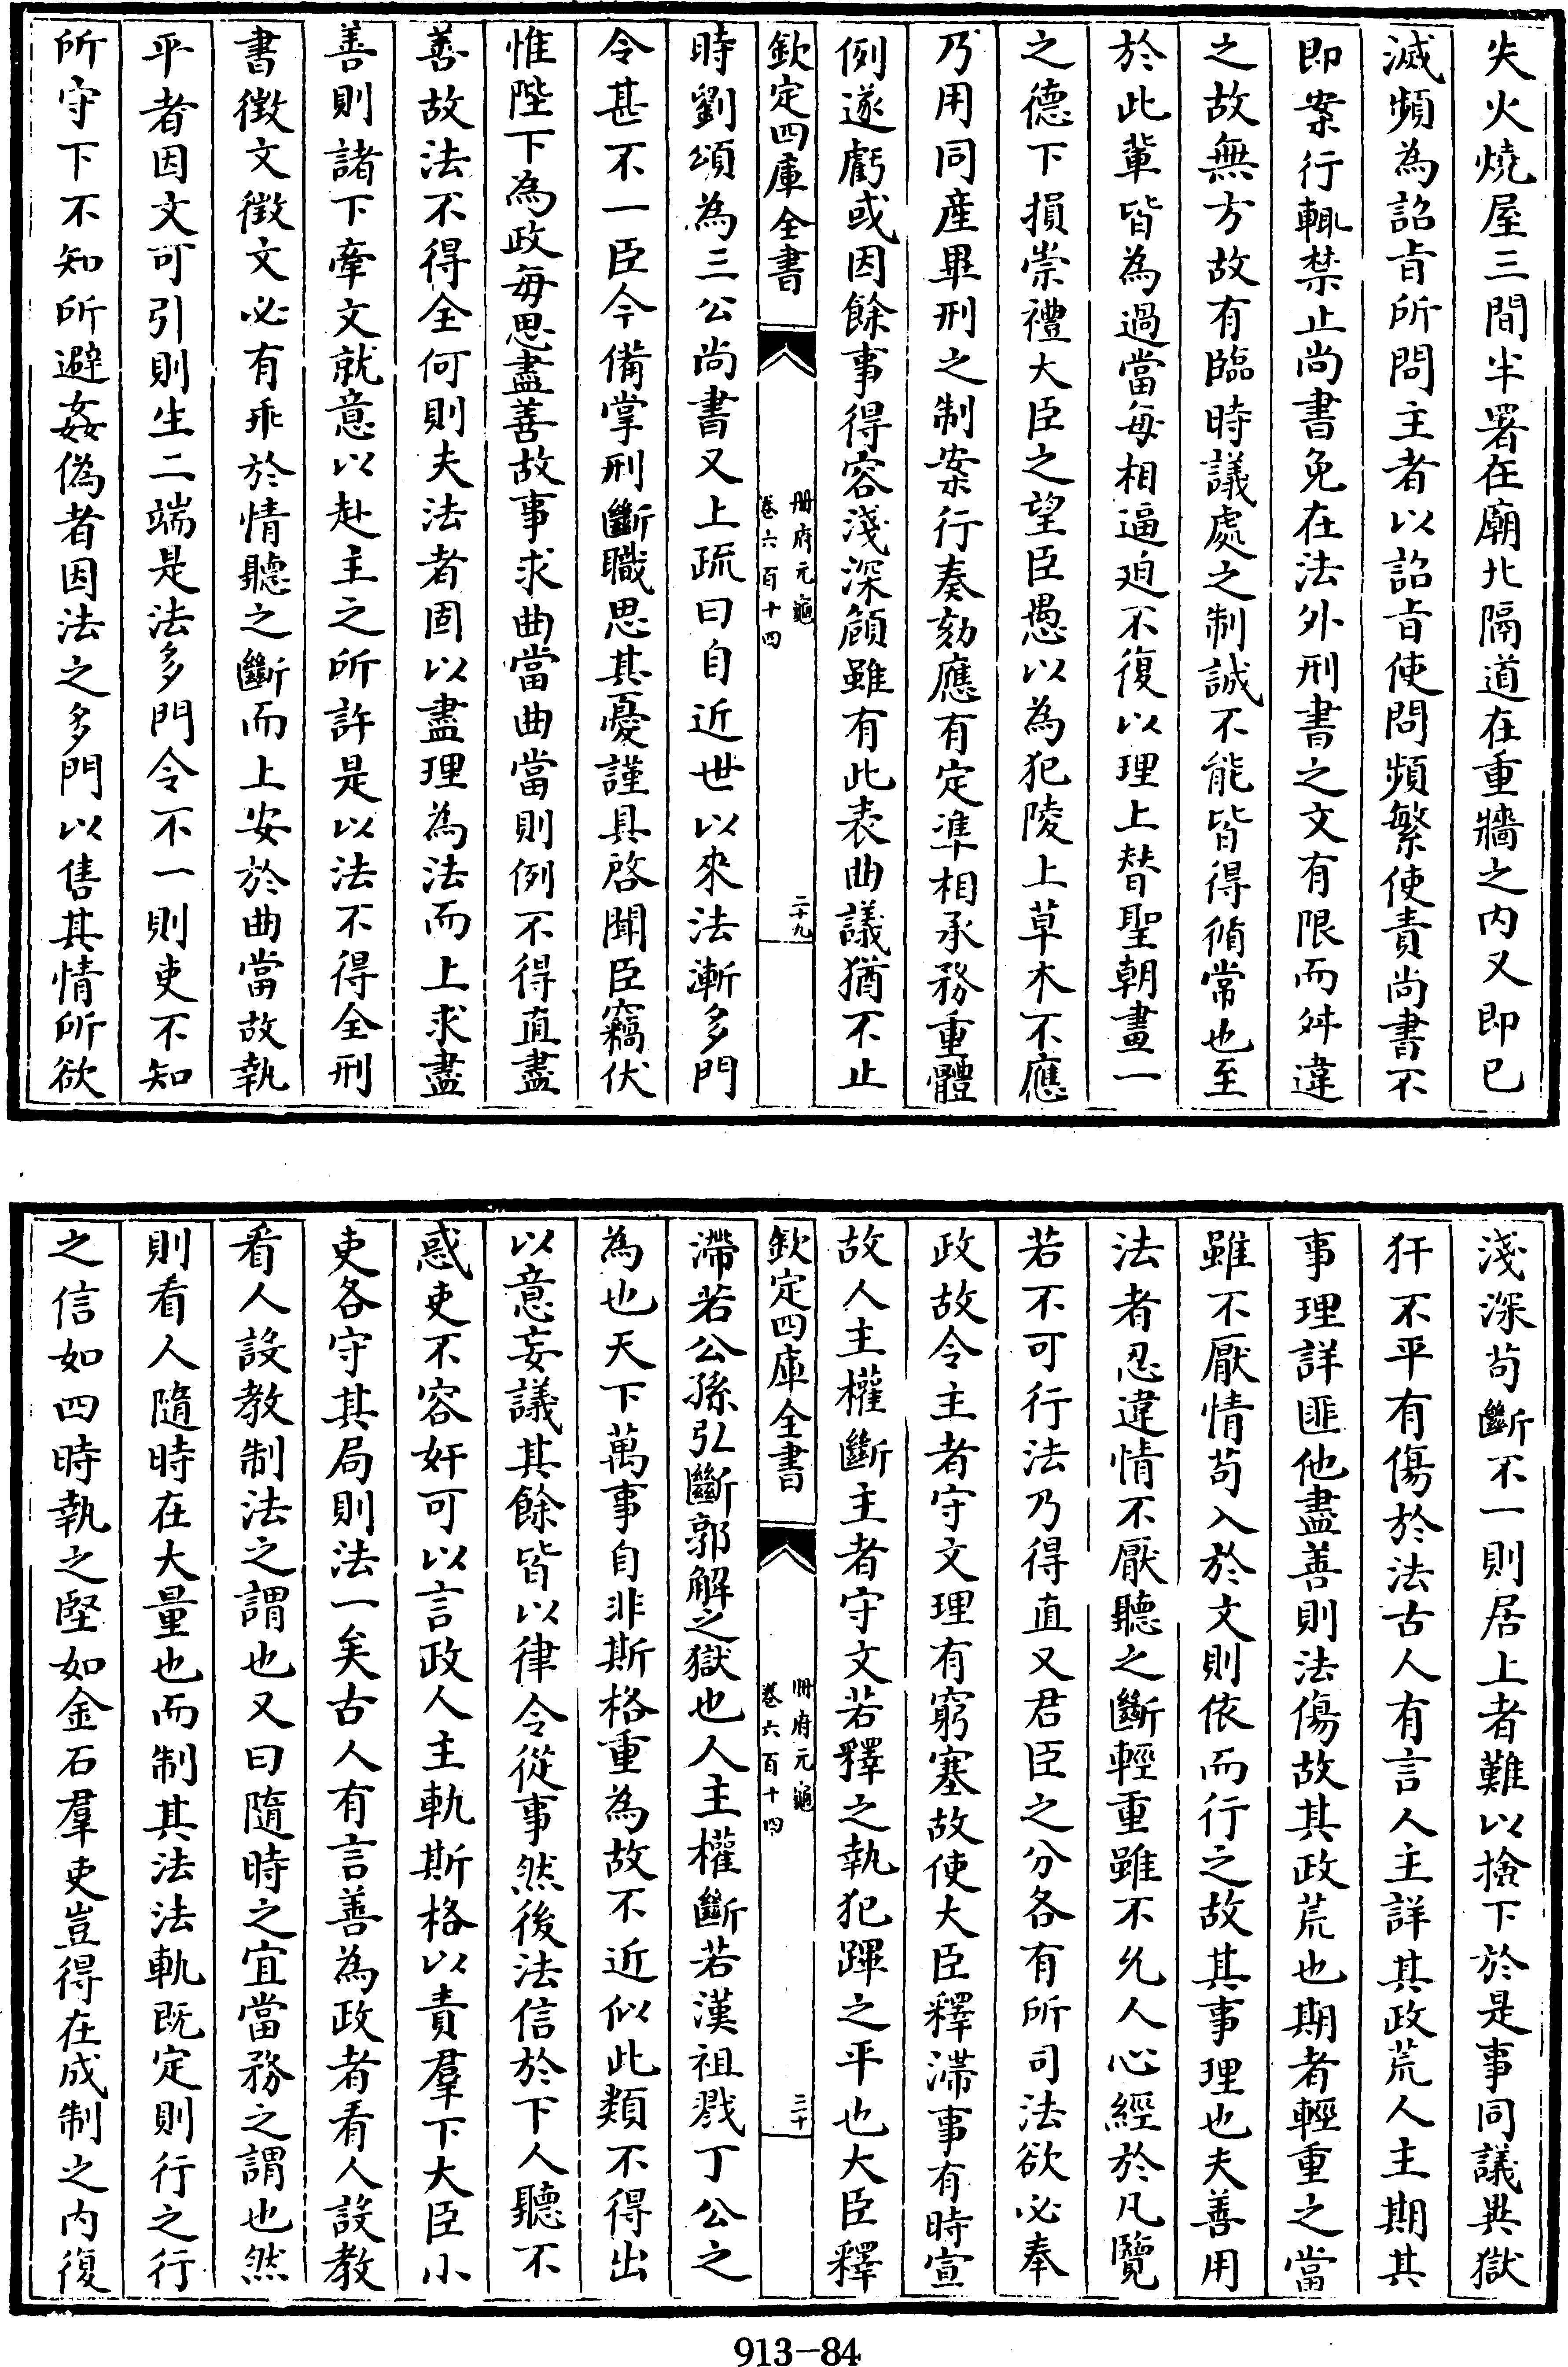 失火燒屋三間半署在廟北隔道在重牆之内又即已
滅頻為詔㫖所問主者以詔㫖使問頻繁使責尚書不
即案行輒禁止尚書免在法外刑書之文有限而舛違
之故無方故有臨時議處之制誠不能皆得循常也至
於此輩皆為過當每相逼迫不復以理上替聖朝畫一
之德下損崇禮大臣之望臣愚以為犯陵上草木不應
乃用同産異刑之制案行奏劾應有定準相承務重體
例遂虧或因餘事得容淺深頠雖有此表曲議猶不止
欽定四庫全書
册府元龜
卷六百十四
二十九
時劉頌為三公尚書又上疏曰自近世以來法漸多門
令甚不一臣今備掌刑斷職思其憂謹具啓聞臣竊伏
惟陛下為政每思盡善故事求曲當曲當則例不得直盡
善故法不得全何則夫法者固以盡理為法而上求盡
善則諸下牽文就意以赴主之所許是以法不得全刑
書徵文徵文必有乖於情聽之斷而上安於曲當故執
平者因文可引則生二端是法多門令不一則吏不知
所守下不知所避姦偽者因法之多門以售其情所欲
淺深苟斷不一則居上者難以撿下於是事同議異獄
犴不平有傷於法古人有言人主詳其政荒人主期其
事理詳匪他盡善則法傷故其政荒也期者輕重之當
雖不厭情苟入於文則依而行之故其事理也夫善用
法者忍違情不厭聽之斷輕重雖不允人心經於凡覽
若不可行法乃得直又君臣之分各有所司法欲必奉
政故令主者守文理有窮塞故使大臣釋滯事有時宣
故人主權斷主者守文若釋之執犯蹕之平也大臣釋
欽定四庫全書
册府元龜
卷六百十四
三十
滯若公孫弘斷郭解之獄也人主權斷若漢祖戮丁公之
為也天下萬事自非斯格重為故不近似此類不得出
以意妄議其餘皆以律令從事然後法信於下人聽不
惑吏不容奸可以言政人主軌斯格以責羣下大臣小
吏各守其局則法一矣古人有言善為政者看人設教
看人設教制法之謂也又曰隨時之宜當務之謂也然
則看人隨時在大量也而制其法法軌既定則行之行
之信如四時執之堅如金石羣吏豈得在成制之内復
913-84